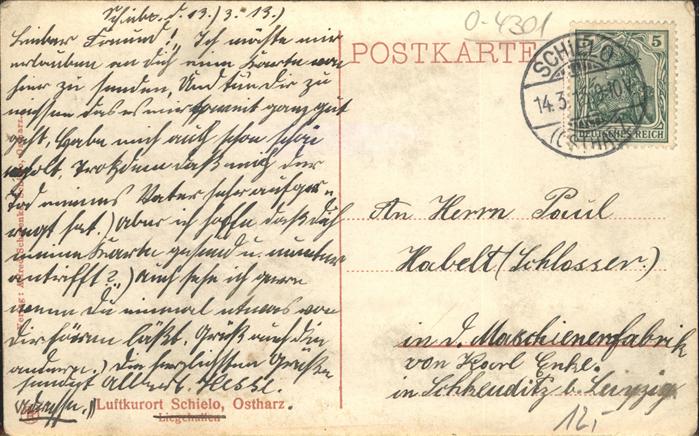 Schielo d. 13.) 3. 13.)
Lieber Freund! Ich möchte mir
erlauben an dich eine Karte von
hier zu senden, Und tun dir zu
wissen das es mir soweit ganz gut
geht, habe mich auch schon
erholt. Trotzdem daß mich der
Tod meines Vater sehr aufge-
regt hat.) Aber ich hoffe daß dich
meine Karte gesund u. munter
antrifft?) Auch sehe ich gern
wenn du einmal etwas von
dir hören läßt. Grüß auch die
andern.) Die herzlichsten Grüße
sendet Albert Hesse.
Adresse. Luftkurort Schielo, Ostharz.
Liegehallen
0-4301
POSTKARTE
SCHIELO
14.3.
(OSTHARZ)
5
DEUTSCHES REICH
An Herrn Paul
Habelt (Schlosser.)
in d. Maschienenfabrik
von Karl Enke.
in Schkeuditz b. Leipzig
12,-